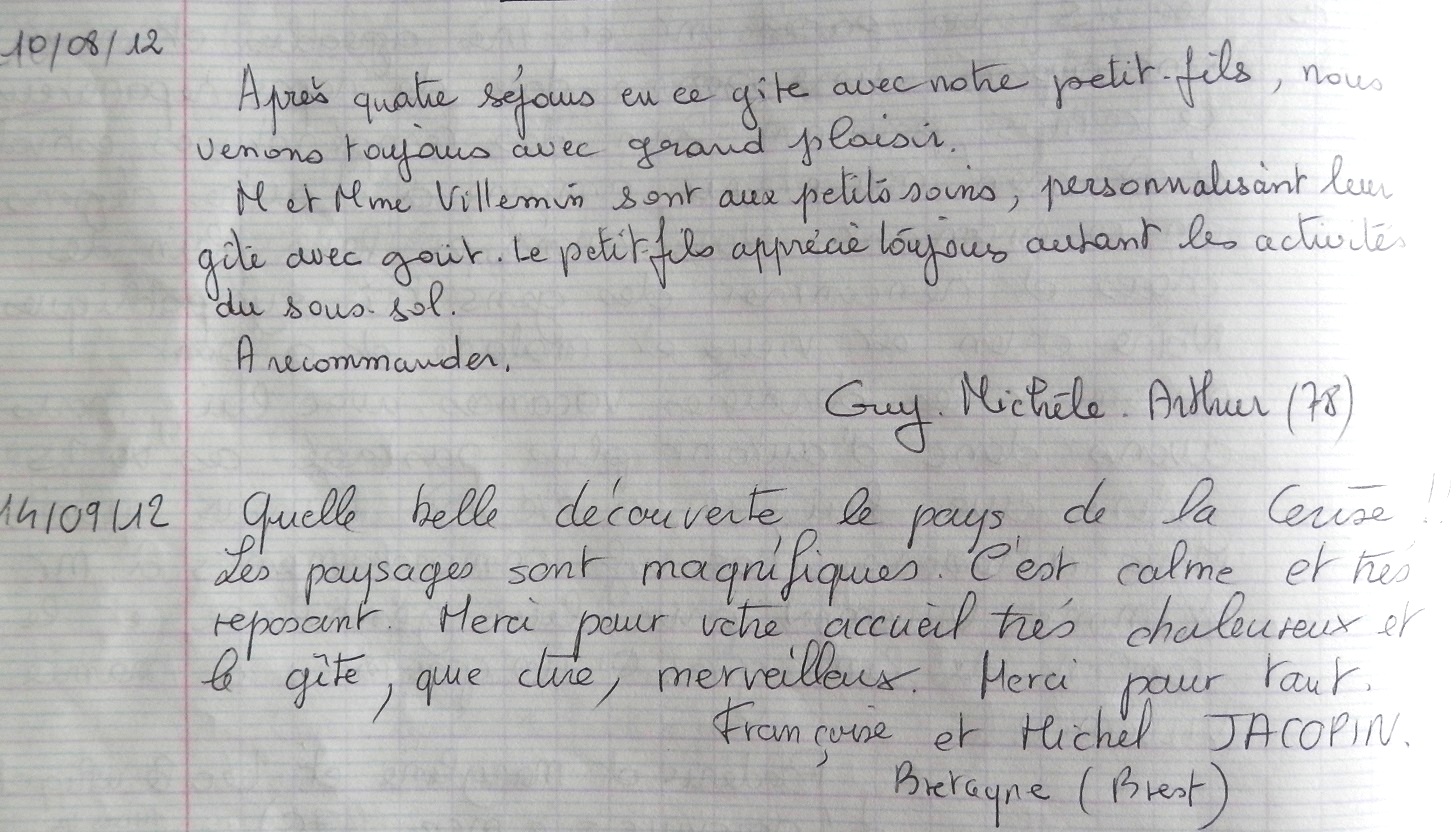 10/08/12
Après quatre séjours en ce gîte avec notre petit-fils, nous
venons toujours avec grand plaisir.
M et Mme Villemin sont aux petits soins, personnalisant leur
gîte avec goût. Le petit-fils apprécie toujours autant les activités
du sous-sol.
A recommander.
Guy. Michèle. Arthur (78)
14/09/12 Quelle belle découverte le pays de la Cerise !!
Les paysages sont magnifiques. C'est calme et très
reposant. Merci pour votre accueil très chaleureux et
le gîte, que dire, merveilleux. Merci pour tout.
Françoise et Michel JACOPIN.
Bretagne (Brest)